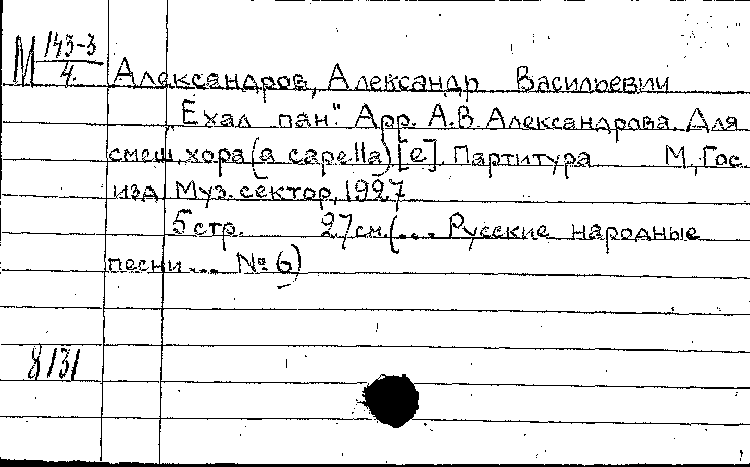 М 143-3/4.
Александров, Александр Васильевич
"Ехал пан". Арр. А.В. Александрова. Для
смеш. хора (a capella) [e]. Партитура М, Гос
изд Муз. сектор, 1927
5 стр. 27 см. (... Русские народные
песни ... № 6)
8131